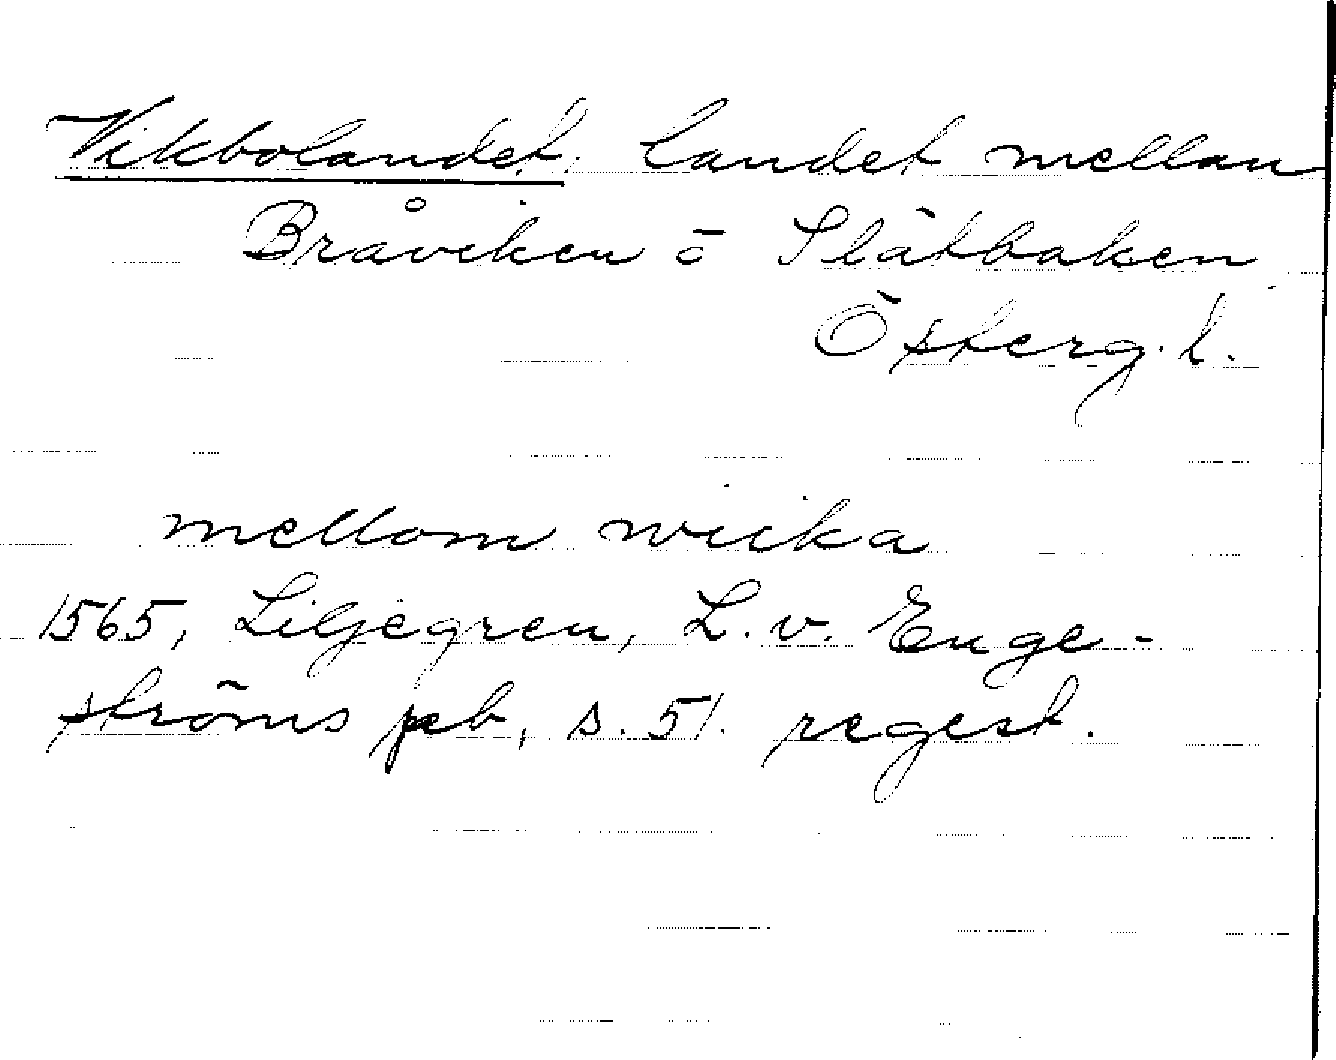 Vikbolandet, landet mellan
Bråviken o Slätbaken
Österg. l.
mellom wiika
1565, Liljegren, L. v. Enge-
ströms peb, s. 51. regest.